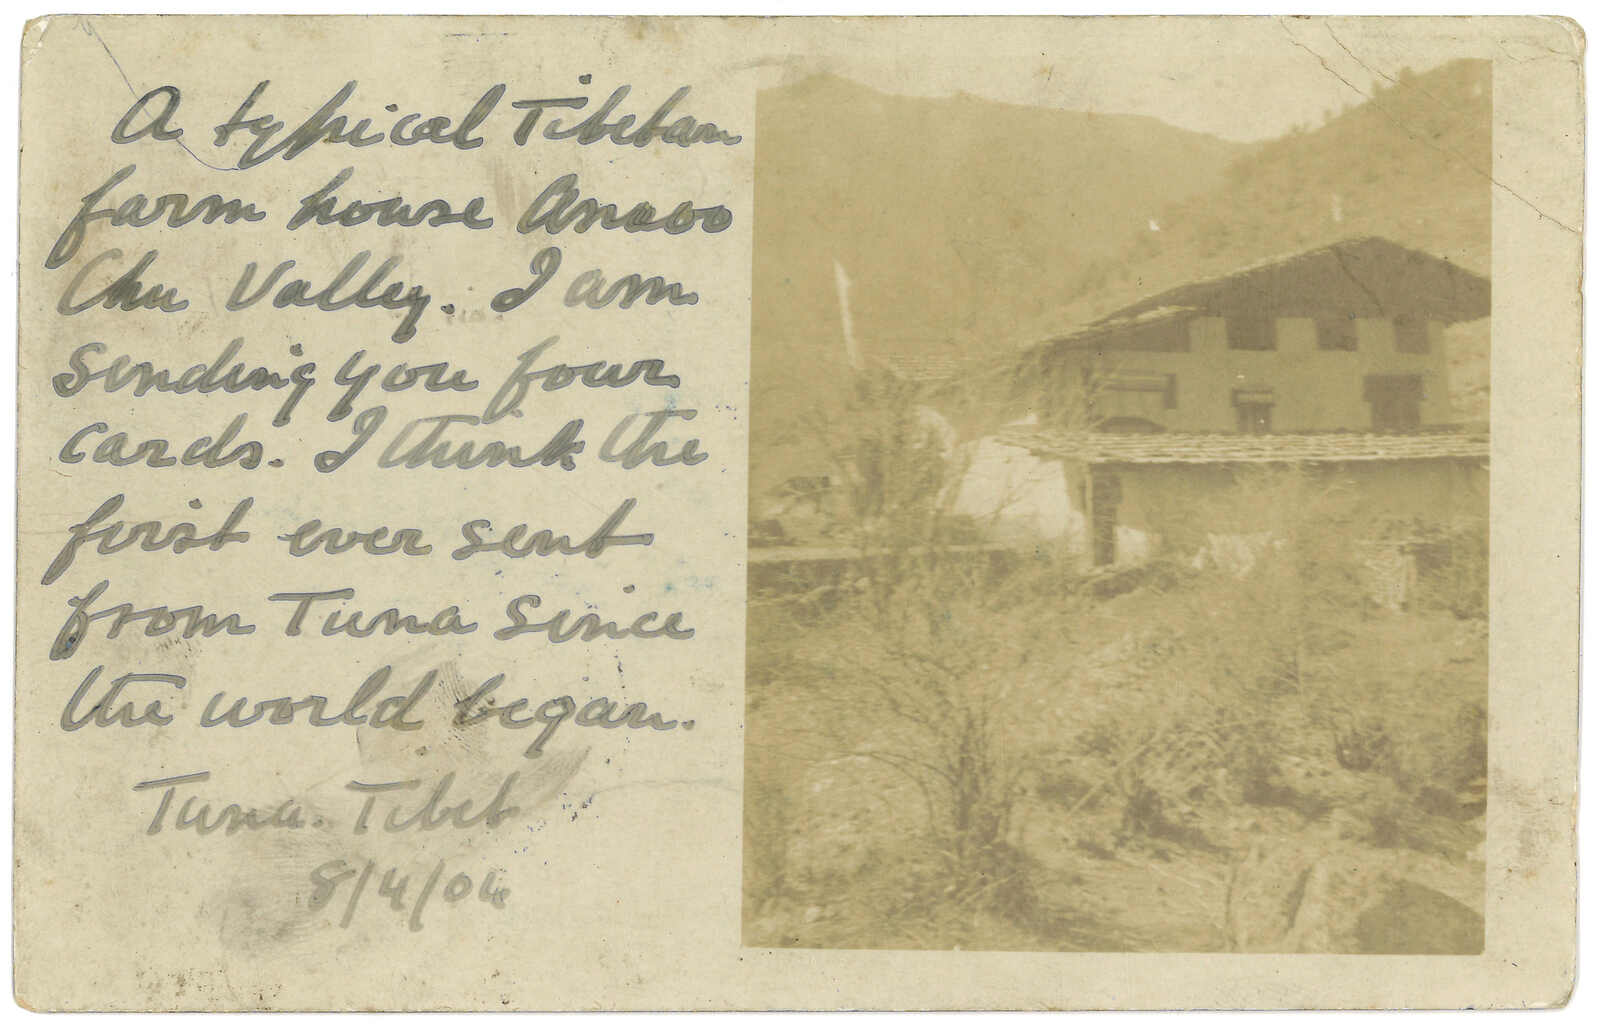 A typical Tibetan
farm house Amoo
Chu Valley. I am
sending you four
cards. I think the
first ever sent
from Tuna since
the world began.
Tuna. Tibet
8/4/04